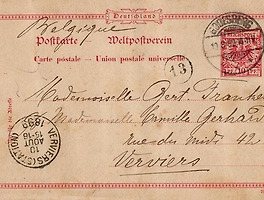 Deutschland
Belgique
Postkarte Weltpostverein
Carte postale — Union postale universelle
13
Mademoiselle Bert. Franken
Mademoiselle Camille Gerhard
rue du midi 42
Verviers
VERVIERS (STATION)
10
AOUT
15-16
1893